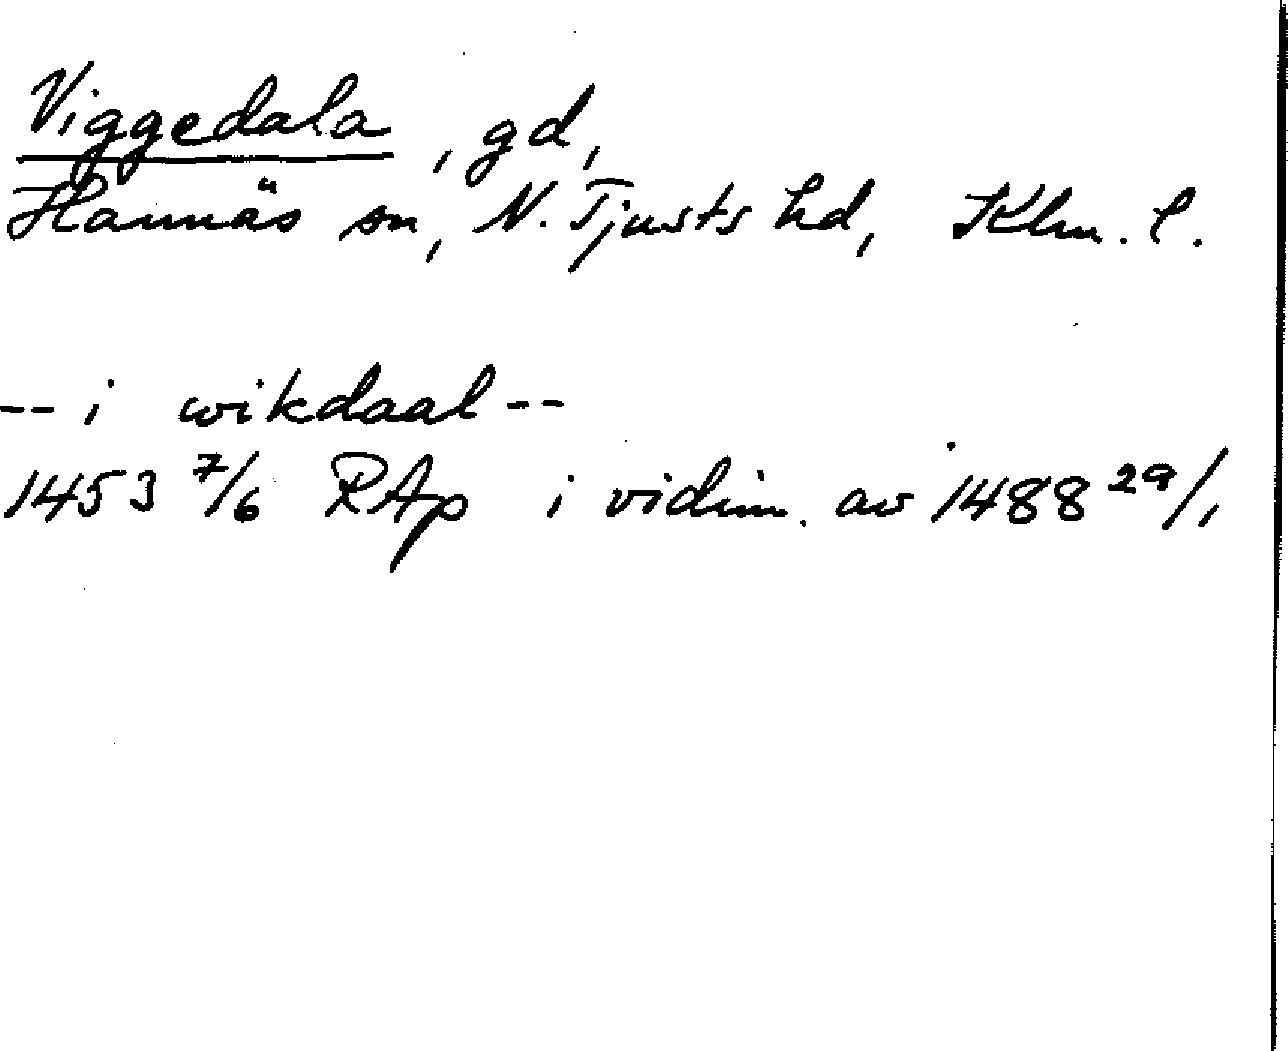 Viggedala, gd,
Hannäs sn, N. Tjusts hd, Klm. l.
-- i wikdaal --
1453 7/6 RAp i vidim. av 1488 29/1